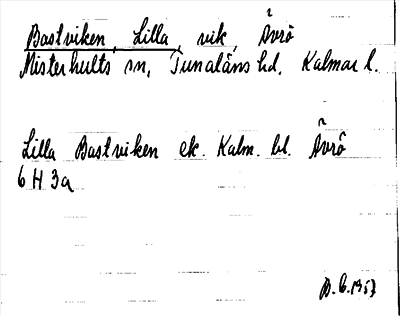 Bastviken, Lilla, vik, Ävrö
Misterhults sn, Tunaläns hd, Kalmar l.
Lilla Bastviken ek. Kalm. bl. Ävrö
6 H 3a